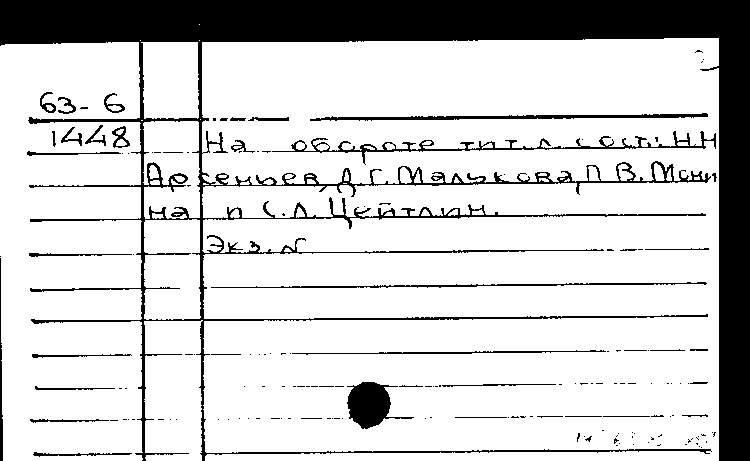 2
63-6
1448 На обороте тит. л. сост.: Н.Н
Арсеньев, Д.Г. Малькова, П.В. Мони
на и С.Л. Цейтлин.
Экз. N